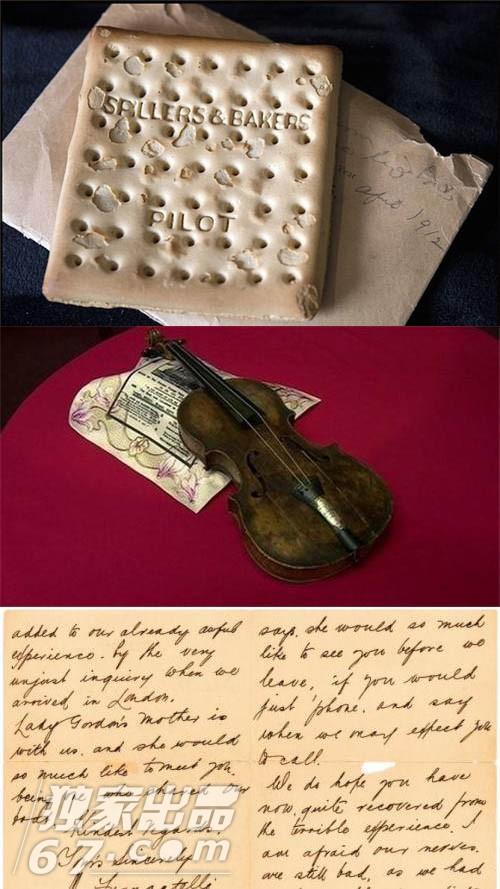 SPILLERS & BAKERS
PILOT
April 1912
added to our already awful
experience. by the very
unjust inquiry when we
arrived in London.
Lady Gordon's Mother is
with us. and she would
so much like to meet you.
being one who shared our
boat.
Kindest Regards.
Yrs. Sincerely
says, she would so much
like to see you before we
leave, if you would
just phone. and say
when we may expect you
to call.
We do hope you have
now, quite recovered from
the terrible experience. I
am afraid our nerves.
are still bad, as we had
独家出品
67.com